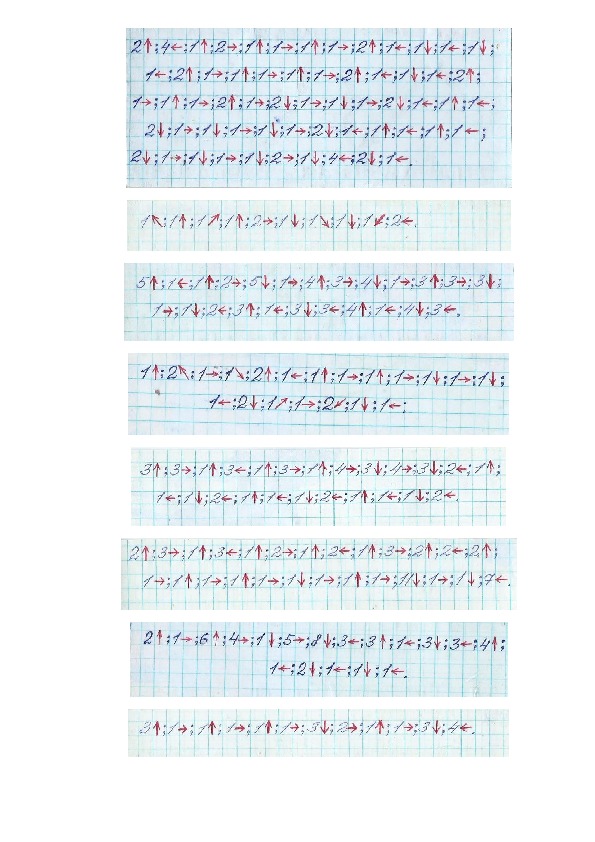 2↑;4←;1↑;2→;1↑;1→;1↑;1→;2↑;1←;1↓;1←;1↓;
1←;2↑;1→;1↑;1→;1↑;1→;2↑;1←;1↓;1←;2↑;
1→;1↑;1→;2↑;1→;2↓;1→;1↓;1→;2↓;1←;1↑;1←;
2↓;1→;1↓;1→;1↓;1→;2↓;1←;1↑;1←;1↑;1←;
2↓;1→;1↓;1→;1↓;2→;1↓;4←;2↓;1←.
1↖;1↑;1↗;1↑;2→;1↓;1↘;1↓;1↙;2←.
5↑;1←;1↑;2→;5↓;1→;4↑;3→;4↓;1→;3↑;3→;3↓;
1→;1↓;2←;3↑;1←;3↓;3←;4↑;1←;4↓;3←.
1↑;2↖;1→;1↘;2↑;1←;1↑;1→;1↑;1→;1↓;1→;1↓;
1←;2↓;1↗;1→;2↙;1↓;1←;
3↑;3→;1↑;3←;1↑;3→;1↑;4→;3↓;4→;3↓;2←;1↑;
1←;1↓;2←;1↑;1←;1↓;2←;1↑;1←;1↓;2←.
2↑;3→;1↑;3←;1↑;2→;1↑;2←;1↑;3→;2↑;2←;2↑;
1→;1↑;1→;1↑;1→;1↓;1→;1↑;1→;11↓;1→;1↓;7←.
2↑;1→;6↑;4→;1↓;5→;8↓;3←;3↑;1←;3↓;3←;4↑;
1←;2↓;1←;1↓;1←.
3↑;1→;1↑;1→;1↑;1→;3↓;2→;1↑;1→;3↓;4←.